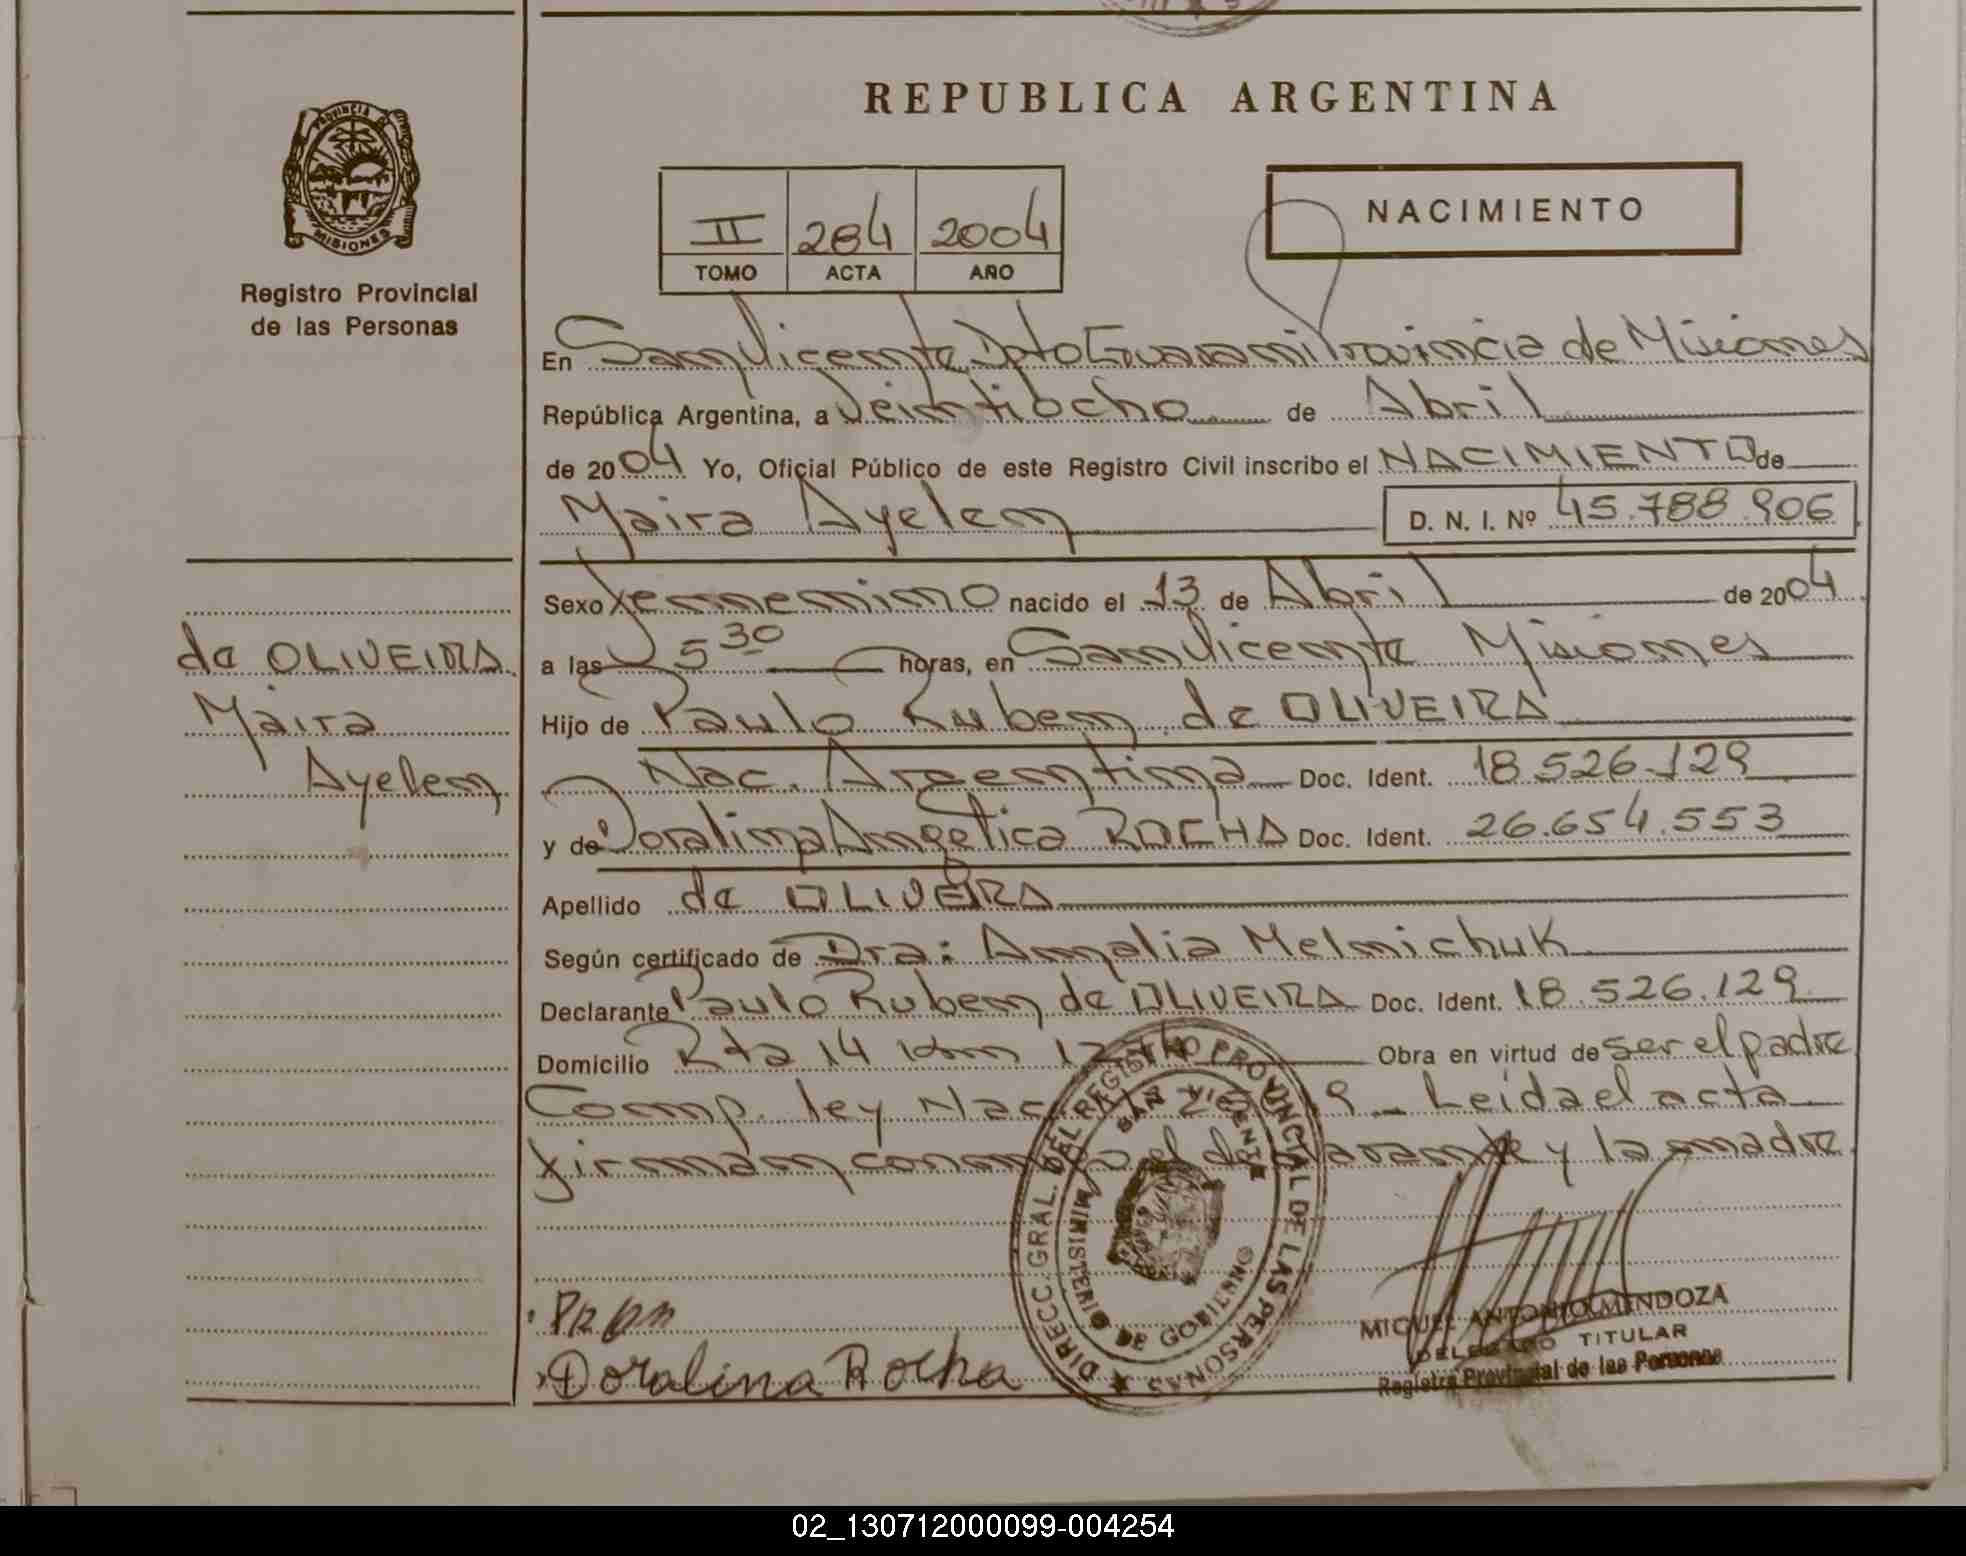 REPUBLICA ARGENTINA
PROVINCIA DE
MISIONES
Registro Provincial
de las Personas
II 284 2004
TOMO ACTA AÑO
NACIMIENTO
En San Vicente Dpto Guarani Provincia de Misiones
República Argentina, a Veintiocho de Abril
de 2004 Yo, Oficial Público de este Registro Civil inscribo el NACIMIENTO de
Maira Ayelen D. N. I. Nº 45.788.906
Sexo femenino nacido el 13 de Abril de 2004
a las 5 30 horas, en San Vicente Misiones
Hijo de Paulo Ruben de OLIVEIRA
Nac. Argentina Doc. Ident. 18.526.129
y de Doralina Angelica ROCHA Doc. Ident. 26.654.553
Apellido de OLIVEIRA
Según certificado de Dra: Amalia Melnichuk
Declarante Paulo Ruben de OLIVEIRA Doc. Ident. 18.526.129
Domicilio Rta 14 km Obra en virtud de ser el padre
Comp. ley Nac Leida el acta
firman conmigo el declarante y la madre
de OLIVEIRA
Maira
Ayelen
Doralina Rocha
DIRECC. GRAL. DEL REGISTRO PROVINCIAL DE LAS PERSONAS
SAN VICENTE
MINISTERIO DE GOBIERNO
MIGUEL ANTONIO MENDOZA
DELEGADO TITULAR
Registro Provincial de las Personas
02_130712000099-004254